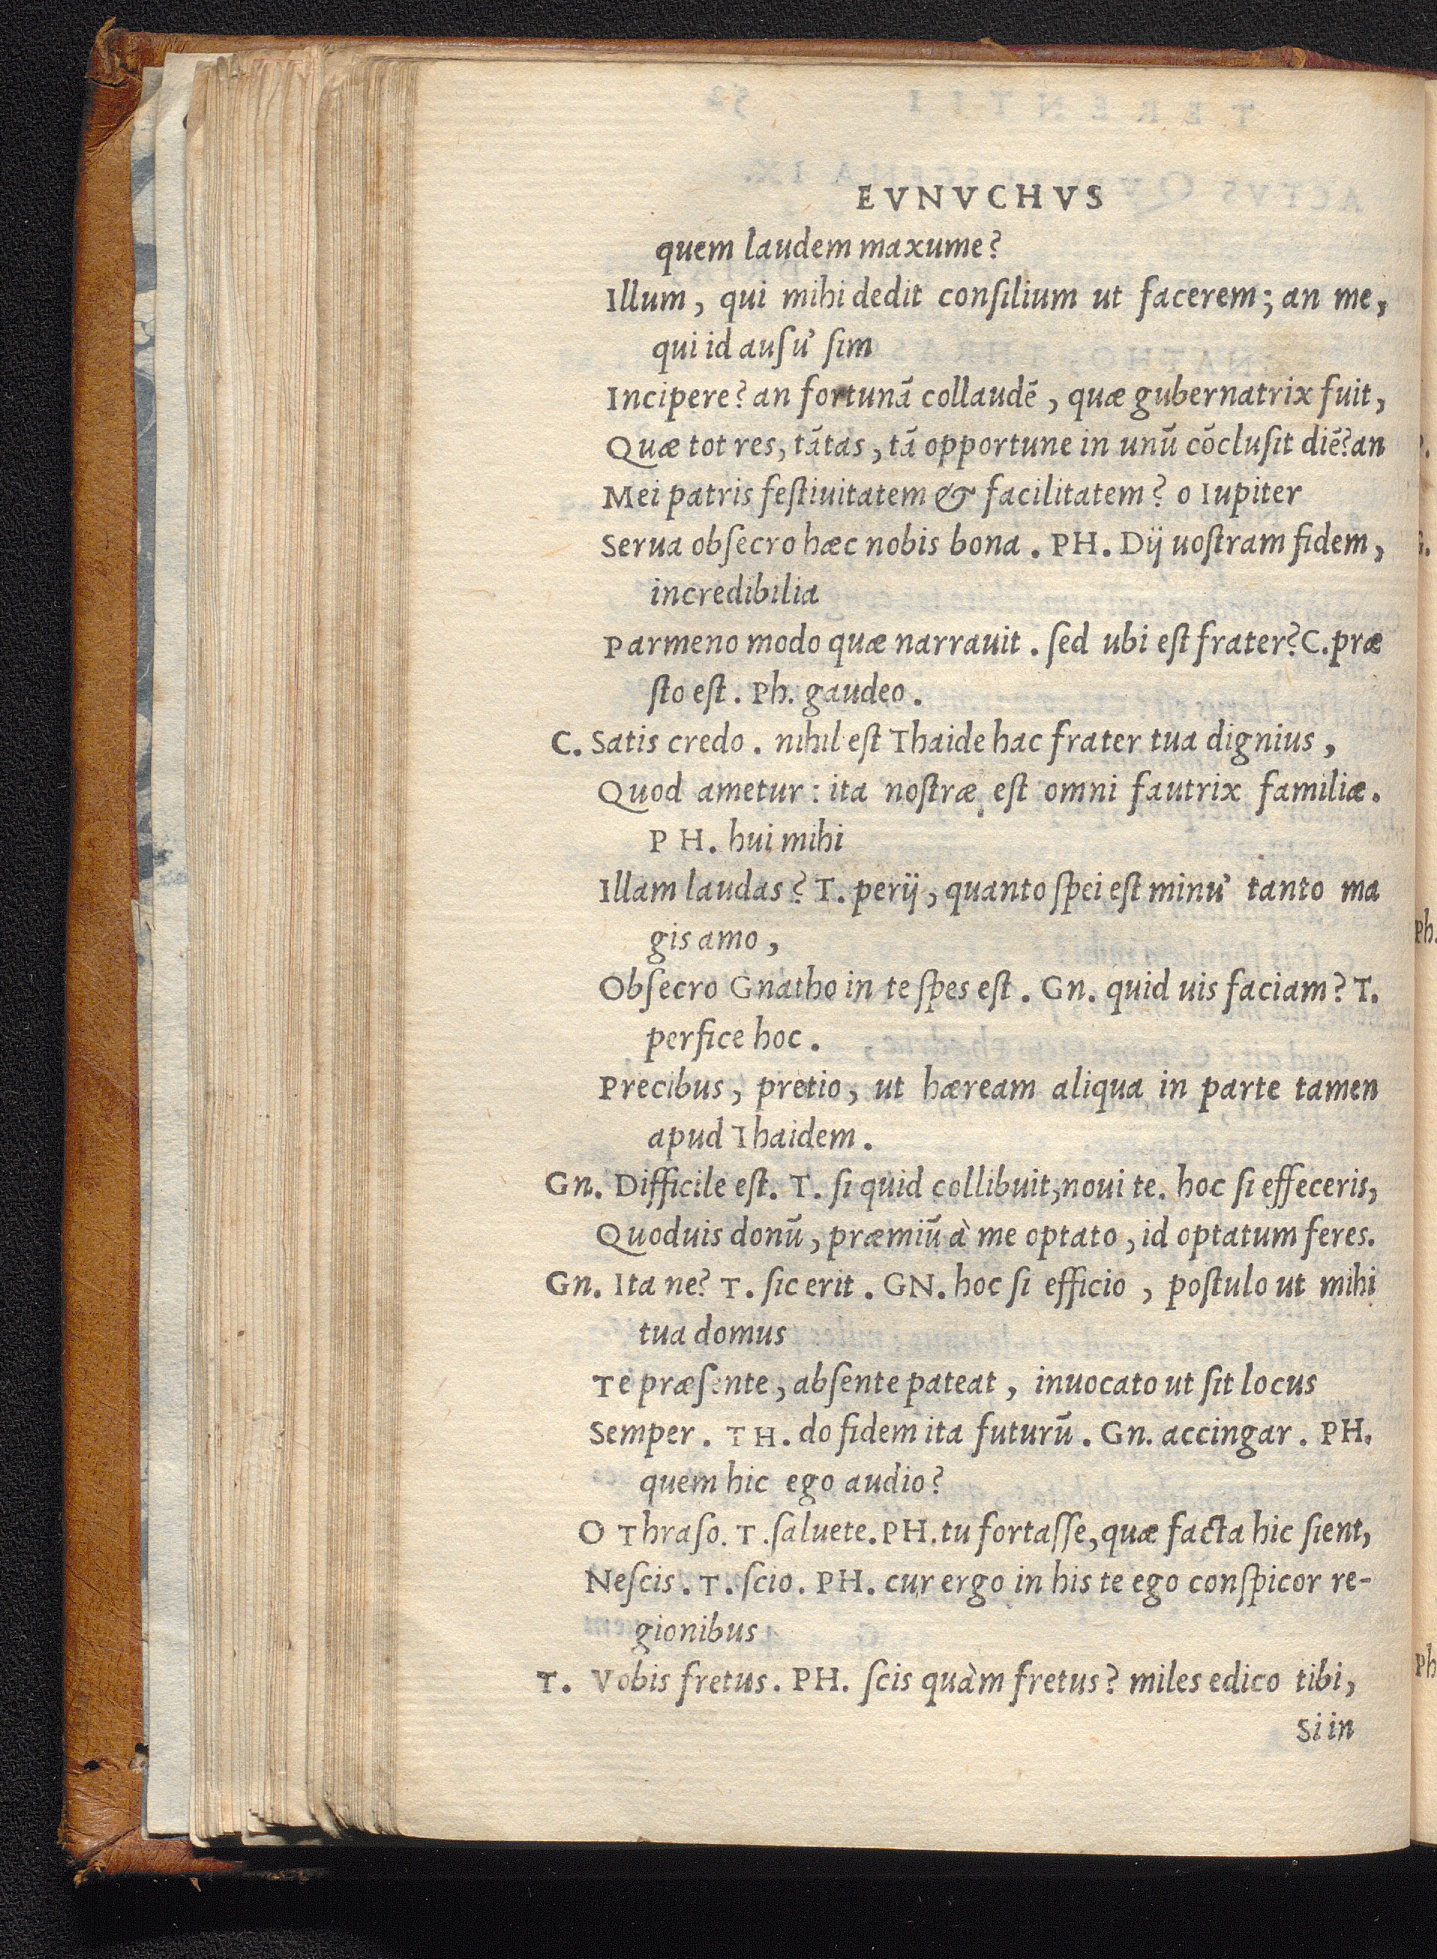 EVNVCHVS
quem laudem maxume?
Illum, qui mihi dedit conſilium ut facerem; an me,
qui id auſu' ſim
Incipere? an fortunā collaudē, quæ gubernatrix fuit,
Quæ tot res, tātas, tā opportune in unū cōcluſit diē? an
Mei patris feſtiuitatem & facilitatem? o Iupiter
Serua obſecro hæc nobis bona. PH. Dij uoſtram fidem,
incredibilia
Parmeno modo quæ narrauit. ſed ubi eſt frater? C. præ
ſto eſt. Ph. gaudeo.
C. Satis credo. nihil eſt Thaide hac frater tua dignius,
Quod ametur: ita noſtræ eſt omni fautrix familiæ.
PH. hui mihi
Illam laudas? T. perij, quanto ſpei eſt minu' tanto ma
gis amo,
Obſecro Gnatho in te ſpes eſt. Gn. quid uis faciam? T.
perfice hoc.
Precibus, pretio, ut hæream aliqua in parte tamen
apud Thaidem.
Gn. Difficile eſt. T. ſi quid collibuit, noui te. hoc ſi effeceris,
Quoduis donū, præmiū à me optato, id optatum feres.
Gn. Ita ne? T. ſic erit. GN. hoc ſi efficio, poſtulo ut mihi
tua domus
Te præſente, abſente pateat, inuocato ut ſit locus
Semper. TH. do fidem ita futurū. Gn. accingar. PH.
quem hic ego audio?
O Thraſo. T. ſaluete. PH. tu fortaſſe, quæ facta hic ſient,
Neſcis. T. ſcio. PH. cur ergo in his te ego conſpicor re-
gionibus
T. Vobis fretus. PH. ſcis quàm fretus? miles edico tibi,
Si in